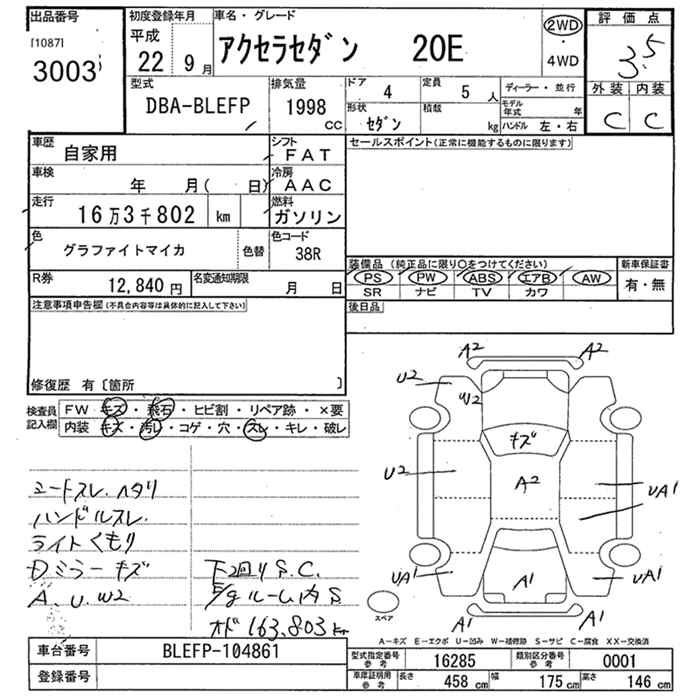 出品番号
[1087]
3003
初度登録年月
平成
22 9月
車名・グレード
アクセラセダン 20E
2WD
・
4WD
評価点
3.5
外装 内装
C C
型式
DBA-BLEFP
排気量
1998
CC
ドア
4
定員
5 人
ディーラー・並行
形状
セダン
積載
kg
モデル年式 年
ハンドル 左・右
車歴
自家用
シフト
FAT
車検
年 月( 日)
冷房
AAC
走行
16万3千802 km
燃料
ガソリン
色
グラファイトマイカ
色替
色コード
38R
R券
12,840 円
名変通知期限
月 日
セールスポイント(正常に機能するものに限ります)
装備品 (純正品に限り〇をつけてください)
新車保証書
PS PW ABS エアB AW
SR ナビ TV カワ
有・無
後日品
注意事項申告欄(不具合内容等は具体的に記入して下さい)
修復歴 有〔箇所 〕
検査員記入欄
FW キズ・飛石・ヒビ割・リペア跡・×要
内装 キズ・汚レ・コゲ・穴・スレ・キレ・破レ
シートスレ.ハタリ
ハンドルスレ.
ライトくもり
Dミラーキズ
A.U.W2
下回りS.C.
E/gルーム内S
オド163,803km
A2 A2
U2
W2
キズ
U2
A2
UA1
UA1
A1
UA1
A1 A1
スペア
A-キズ E-エクボ U-凹み W-補修跡 S-サビ C-腐食 XX-交換済
車台番号
BLEFP-104861
登録番号
型式指定番号参考
16285
類別区分番号参考
0001
車庫証明用参考
長さ 458 cm
幅 175 cm
高さ 146 cm